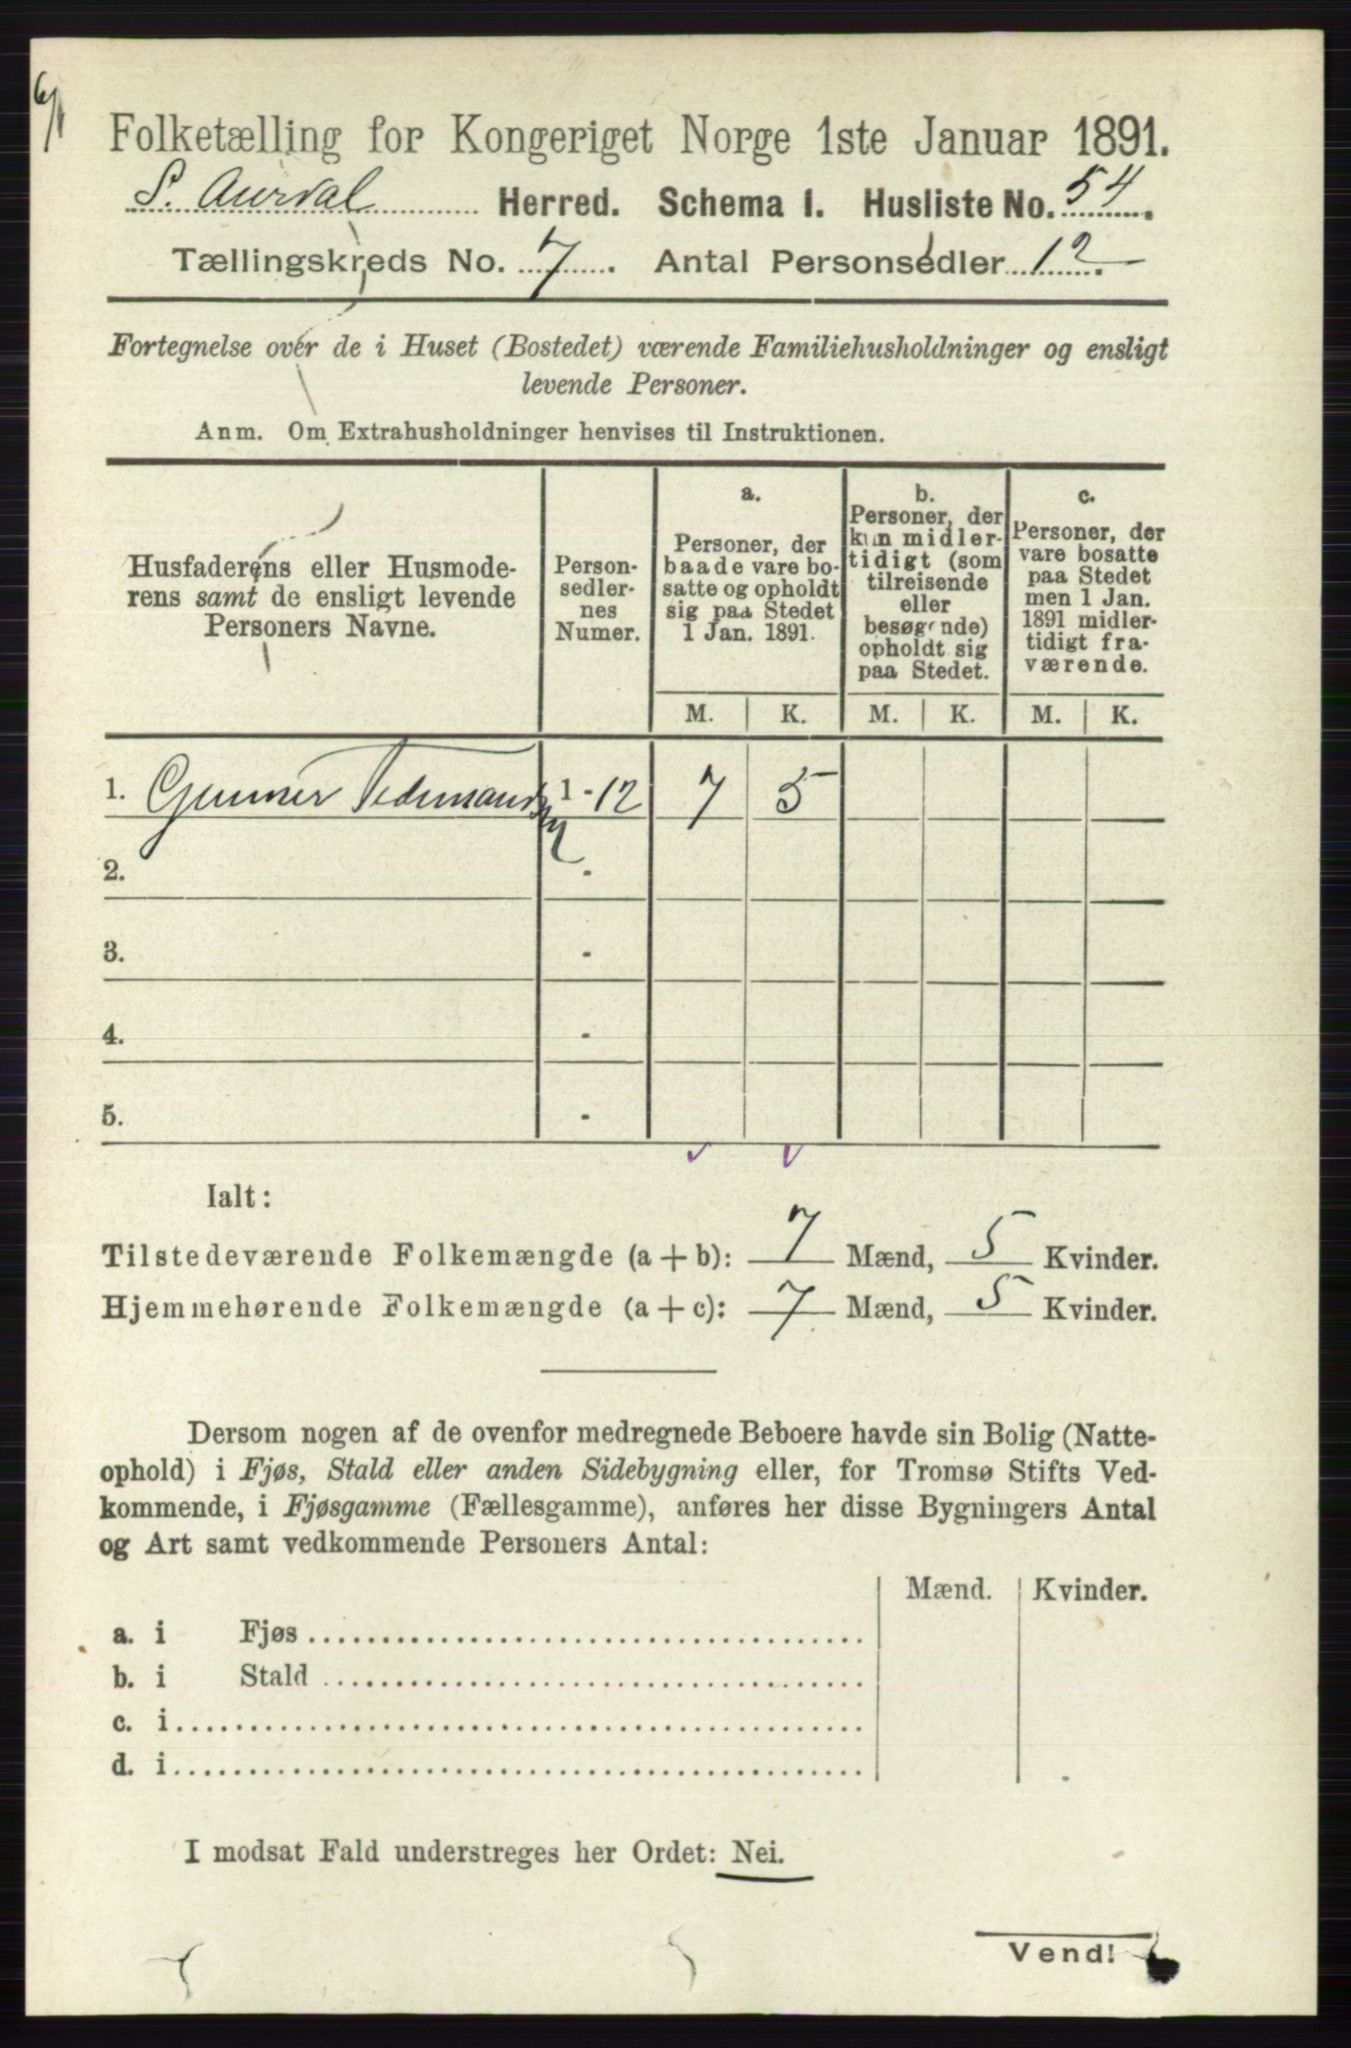 6/1
Folketælling for Kongeriget Norge 1ste Januar 1891.
S. Aurdal Herred. Schema 1. Husliste No. 54.
Tællingskreds No. 7. Antal Personsedler 12.
Fortegnelse over de i Huset (Bostedet) værende Familiehusholdninger og ensligt
levende Personer.
Anm. Om Extrahusholdninger henvises til Instruktionen.
Husfaderens eller Husmode-
rens samt de ensligt levende
Personers Navne.
Person-
sedler-
nes
Numer.
a.
Personer, der
baade vare bo-
satte og opholdt
sig paa Stedet
1 Jan. 1891.
b.
Personer, der
kun midler-
tidigt (som
tilreisende
eller
besøgende)
opholdt sig
paa Stedet.
c.
Personer, der
vare bosatte
paa Stedet
men 1 Jan.
1891 midler-
tidigt fra-
værende.
M. K. M. K. M. K.
1. Gunner 1 - 12 7 5
2. -
3. -
4. -
5. -
Ialt:
Tilstedeværende Folkemængde (a + b): 7 Mænd, 5 Kvinder.
Hjemmehørende Folkemængde (a + c): 7 Mænd, 5 Kvinder.
Dersom nogen af de ovenfor medregnede Beboere havde sin Bolig (Natte-
ophold) i Fjøs, Stald eller anden Sidebygning eller, for Tromsø Stifts Ved-
kommende, i Fjøsgamme (Fællesgamme), anføres her disse Bygningers Antal
og Art samt vedkommende Personers Antal:
Mænd. Kvinder.
a. i Fjøs
b. i Stald
c. i
d. i
I modsat Fald understreges her Ordet: Nei.
Vend!